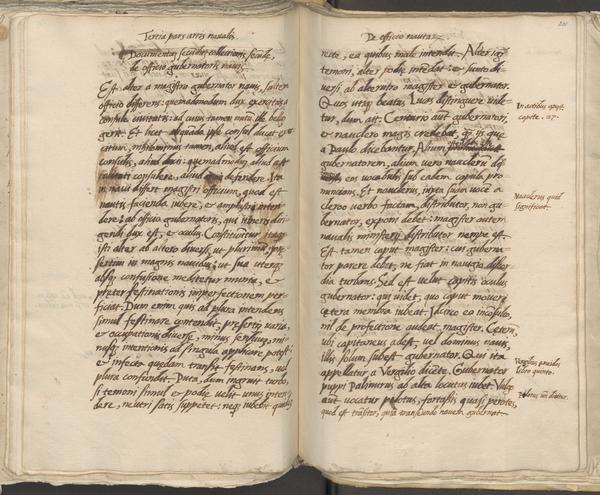 Tertia pars artis navalis.
Documentum secundum collectionis semile,
de officio gubernatoris navis.
Est alter a magistro gubernator navis, saltem
officio differens: quemadmodum dux exercitus a
consule civitatis: ad cuius tamen nutum ille belĺum
gerit. Et licet aliquando ipse consul ducat ex-
ercitum, nihilominus tamen, aliud est officium
consulis, aliud ducis: quemadmodum aliud est
consulere, aliud defendere. Ita
in navi differt magistri officium, quod est
nautis facienda iubere, et
dere: ab officio gubernatoris, qui itineris diri-
gendi dux est, et oculus. Constituitur
alter ab altero diversus, ut plurimum,
sertim in magnis navibus: ut sua uterque
absque confusione meditetur munia, et
preter festinationis imperfectionem per-
ficiat. Dum enim quis ad plura intendens
simul festinare contendit, presertim varia,
et occupationis diverse, minus sensuum, mi-
nusque intentionis ad singula applicare potest:
et infecta quedam transit festinans, vel
plura confundit. Puta, dum ingruit turbo,
si temoni simul et podie velit unus inten-
dere, neutri satis suppetet: neque iubebit quidem
De officio nautarum
recte, ea quibus male intendit. Alter igitur
temoni, alter podie intendat: et sunto di-
versi ab alterutro magister et gubernator.
Quos utique beatus Lucas distinguere vide-
tur, dum ait: Centurio aut gubernatori,
et nauclero magis credebat, quam iis que
a Paulo dicebantur. Alium
gubernatorem, alium vero nauclerum
eos vocabulis sub eadem copula pro-
nuncians. Et nauclerus, iuxta suam vocem a
cleros verbo factam, distributor, non gu-
bernator, exponi debet: magister autem
navalis ministerii distributor nempe est.
Est tamen caput magister: cui guberna-
tor parere debet, ne fiat in navigio discor-
dia turbans. Sed est velut capitis oculus
gubernator: qui videt, quo caput moveri
cetera membra iubeat. Idcirco eo inconsulto,
nil de profectione audeat magister. Ceterum,
ubi capitaneus adest, vel dominus navis,
illis solum subest gubernator. Qui ita
appellatur a Vergilio dicente, Gubernator
puppi Palinurus ab alta locutus iubet. Vulgo
autem vocatur pilotus, fortassis quasi perotes,
quod est transitor, quia transeundo navem gubernat
In actibus apost.
capite. 27.
Nauclerus quid
significat.
Vergilius
libro quinto.
Pilotus unde dicitur.